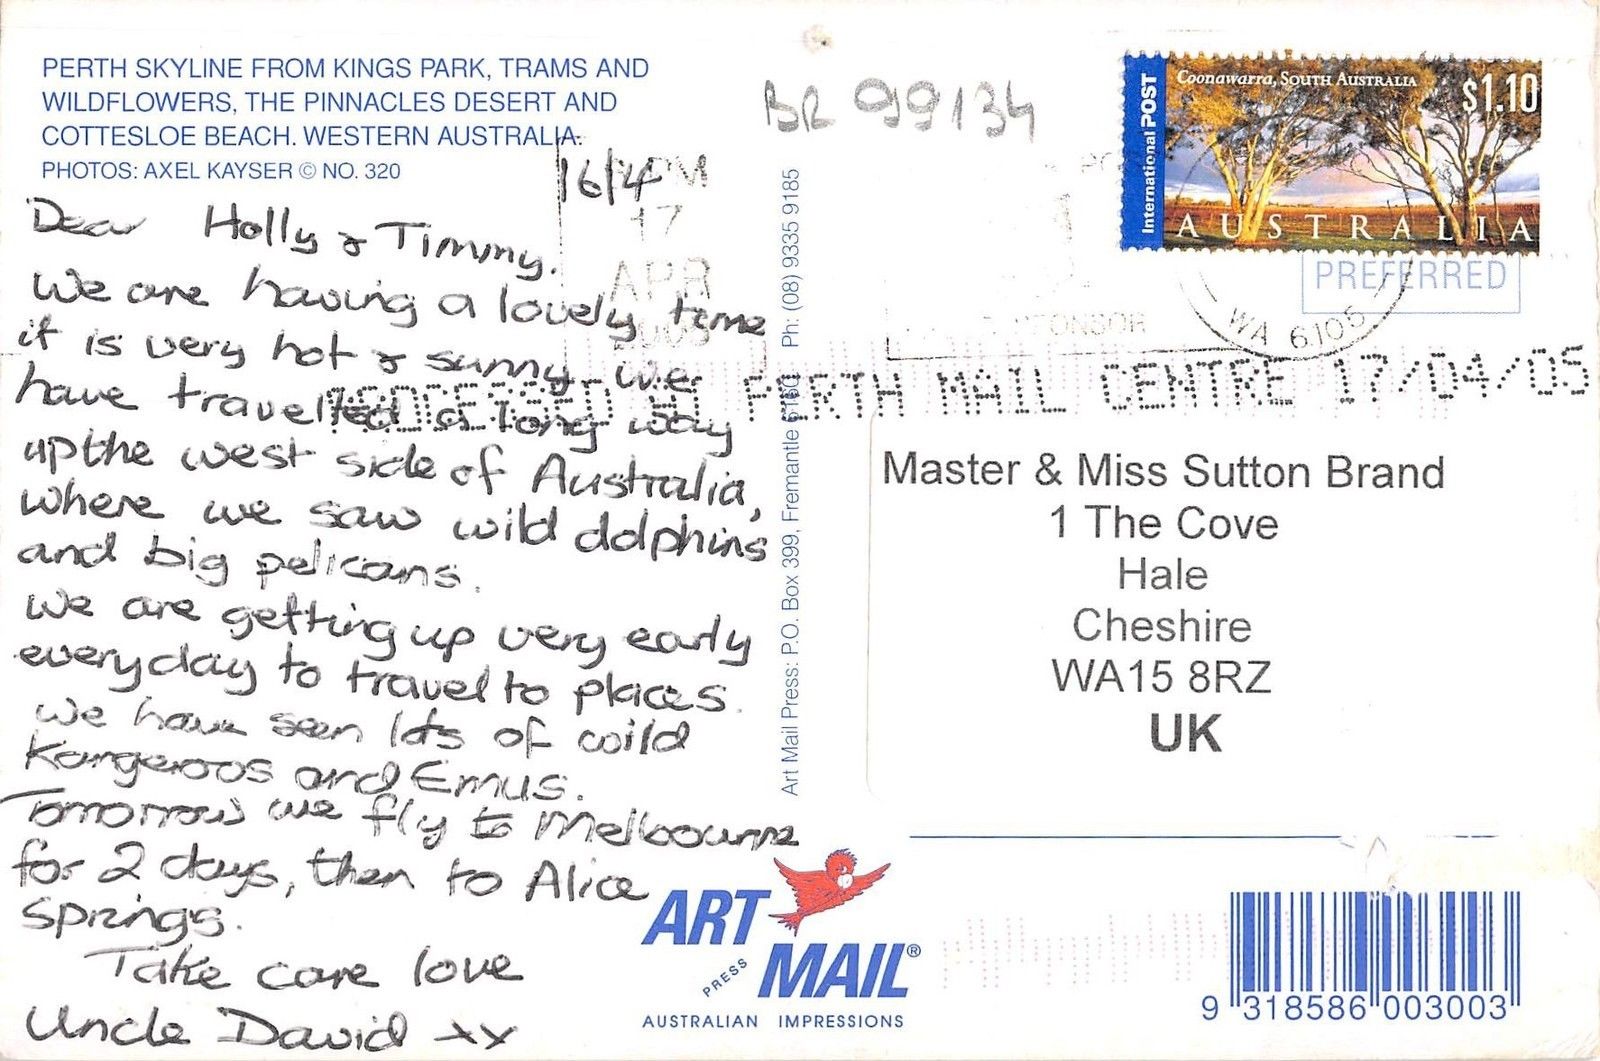 PERTH SKYLINE FROM KINGS PARK, TRAMS AND
WILDFLOWERS, THE PINNACLES DESERT AND
COTTESLOE BEACH. WESTERN AUSTRALIA.
PHOTOS: AXEL KAYSER © NO. 320
16/4
Dear Holly & Timmy.
We are having a lovely time
it is very hot & sunny. We
have travelled a long way
up the west side of Australia,
where we saw wild dolphins
and big pelicans.
We are getting up very early
everyday to travel to places.
We have seen lots of wild
Kangeroos and Emus.
Tomorrow we fly to Melbourne
for 2 days, then to Alice
Springs.
Take care love
Uncle David xx
PM
17
APR
BR 99134
Art Mail Press: P.O. Box 399, Fremantle 6160 Ph: (08) 9335 9185
Coonawarra, SOUTH AUSTRALIA
$1.10
International POST
AUSTRALIA
PREFERRED
SPONSOR
WA 6105
AT PERTH MAIL CENTRE 17/04/05
Master & Miss Sutton Brand
1 The Cove
Hale
Cheshire
WA15 8RZ
UK
ART
PRESS
MAIL®
AUSTRALIAN IMPRESSIONS
9 318586 003003